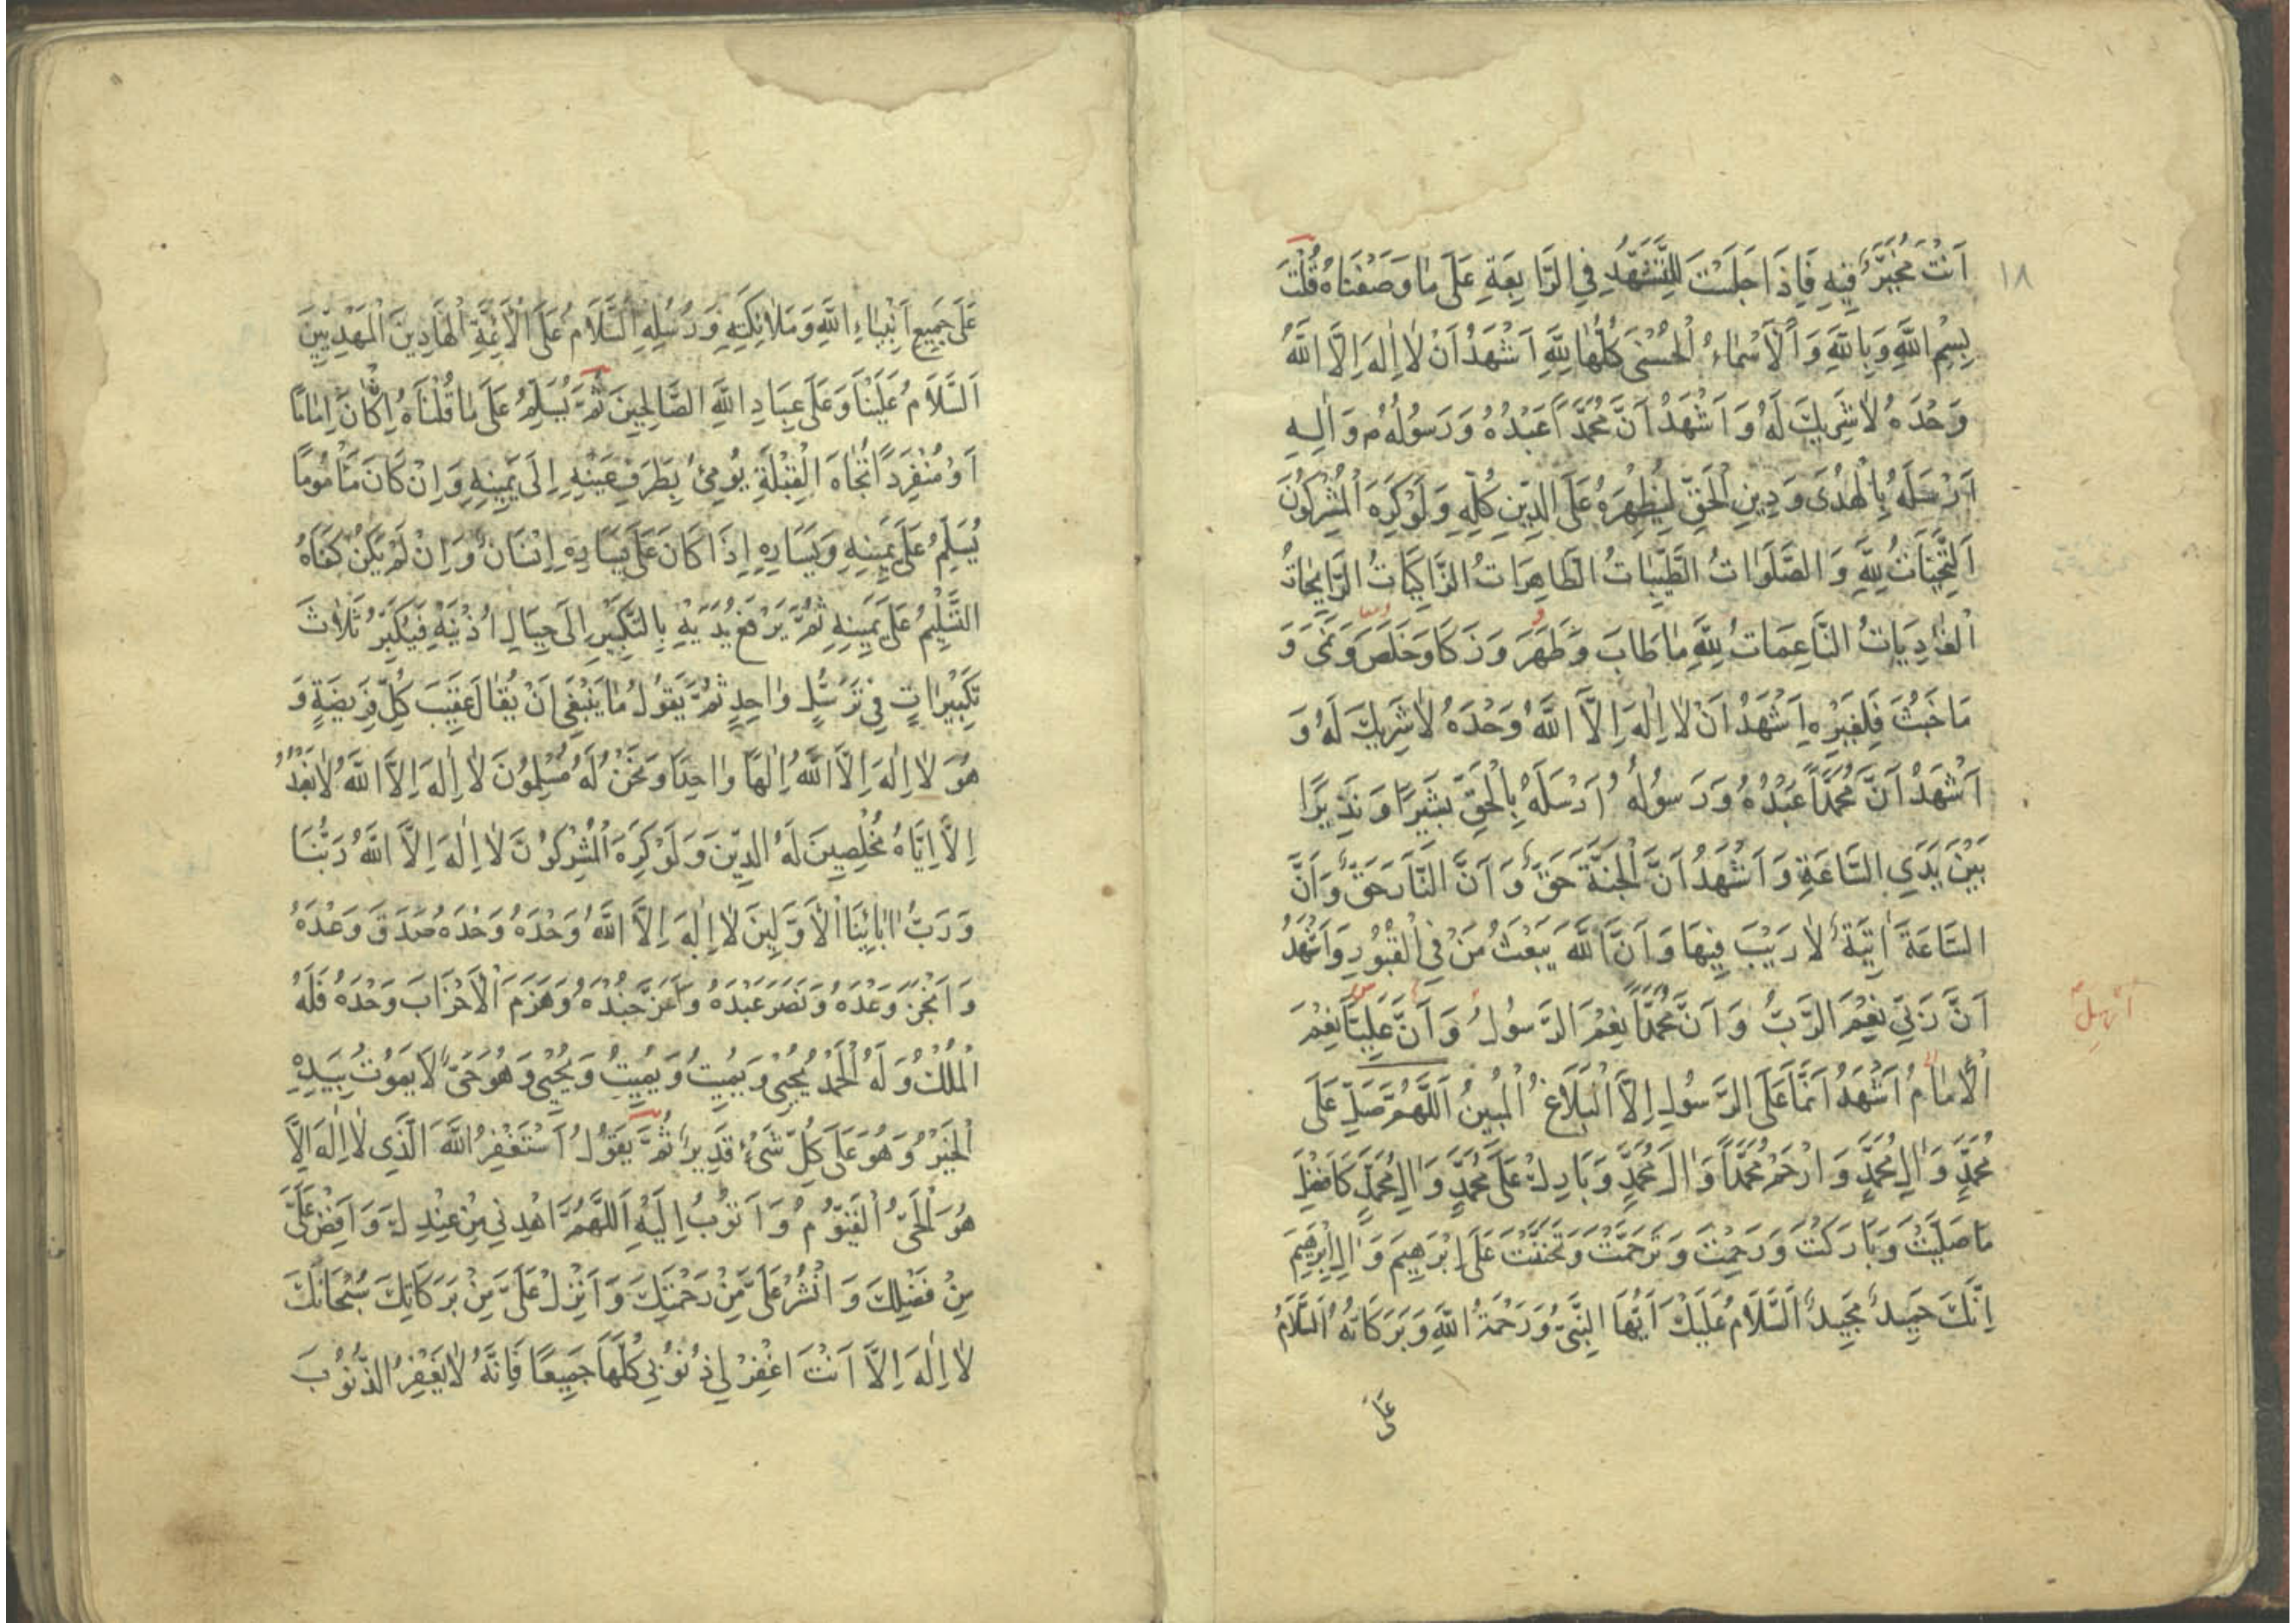 ١٨
اَنْتَ مُخَيَّرٌ فِيهِ فَاِذَا جَلَسْتَ لِلتَّشَهُّدِ فِي الرَّابِعَةِ عَلَى مَا وَصَفْنَاهُ قُلْتَ
بِسْمِ اللَّهِ وَبِاللَّهِ وَالْاَسْمَاءُ الْحُسْنٰى كُلُّهَا لِلَّهِ اَشْهَدُ اَنْ لَا اِلٰهَ اِلَّا اللَّهُ
وَحْدَهُ لَا شَرِيكَ لَهُ وَ اَشْهَدُ اَنَّ مُحَمَّدًا عَبْدُهُ وَ رَسُولُهُ م وَاٰلِهِ
اَرْسَلَهُ بِالْهُدَى وَ دِينِ الْحَقِّ لِيُظْهِرَهُ عَلَى الدِّينِ كُلِّهِ وَ لَوْ كَرِهَ الْمُشْرِكُونَ
اَلتَّحِيَّاتُ لِلَّهِ وَ الصَّلَوَاتُ الطَّيِّبَاتُ الطَّاهِرَاتُ الزَّاكِيَاتُ الرَّايِحَاتُ
الْغَادِيَاتُ النَّاعِمَاتُ لِلَّهِ مَا طَابَ وَ طَهُرَ وَ زَكَا وَ خَلَصَ وَ نَمَى وَ
مَا خَبُثَ فَلِغَيْرِهِ اَشْهَدُ اَنْ لَا اِلٰهَ اِلَّا اللَّهُ وَحْدَهُ لَا شَرِيكَ لَهُ وَ
اَشْهَدُ اَنَّ مُحَمَّدًا عَبْدُهُ وَ رَسُولُهُ اَرْسَلَهُ بِالْحَقِّ بَشِيرًا وَ نَذِيرًا
بَيْنَ يَدَيِ السَّاعَةِ وَ اَشْهَدُ اَنَّ الْجَنَّةَ حَقٌّ وَ اَنَّ النَّارَ حَقٌّ وَ اَنَّ
السَّاعَةَ اٰتِيَةٌ لَا رَيْبَ فِيهَا وَ اَنَّ اللَّهَ يَبْعَثُ مَنْ فِي الْقُبُورِ وَ اَشْهَدُ
اَنَّ رَبِّي نِعْمَ الرَّبُّ وَ اَنَّ مُحَمَّدًا نِعْمَ الرَّسُولُ وَ اَنَّ عَلِيًّا نِعْمَ
الْاِمَامُ اَشْهَدُ اَنَّمَا عَلَى الرَّسُولِ اِلَّا الْبَلَاغُ الْمُبِينُ اَللَّهُمَّ صَلِّ عَلَى
مُحَمَّدٍ وَ اٰلِ مُحَمَّدٍ وَ ارْحَمْ مُحَمَّدًا وَ اٰلَ مُحَمَّدٍ وَ بَارِكْ عَلَى مُحَمَّدٍ وَ اٰلِ مُحَمَّدٍ كَاَفْضَلِ
مَا صَلَّيْتَ وَ بَارَكْتَ وَ رَحِمْتَ وَ تَرَحَّمْتَ وَ تَحَنَّنْتَ عَلَى اِبْرٰهِيمَ وَ اٰلِ اِبْرٰهِيمَ
اِنَّكَ حَمِيدٌ مَجِيدٌ اَلسَّلَامُ عَلَيْكَ اَيُّهَا النَّبِيُّ وَ رَحْمَةُ اللَّهِ وَ بَرَكَاتُهُ السَّلَامُ
عَلَى
عَلَى جَمِيعِ اَنْبِيَاءِ اللَّهِ وَ مَلَائِكَتِهِ وَ رُسُلِهِ السَّلَامُ عَلَى الْاَئِمَّةِ الْهَادِينَ الْمَهْدِيِّينَ
اَلسَّلَامُ عَلَيْنَا وَ عَلَى عِبَادِ اللَّهِ الصَّالِحِينَ ثُمَّ يُسَلِّمُ عَلَى مَا قُلْنَاهُ اِنْ كَانَ اِمَامًا
اَوْ مُنْفَرِدًا تُجَاهَ الْقِبْلَةِ يُومِئُ بِطَرَفِ عَيْنِهِ اِلَى يَمِينِهِ وَ اِنْ كَانَ مَأْمُومًا
يُسَلِّمُ عَلَى يَمِينِهِ وَ يَسَارِهِ اِذَا كَانَ عَلَى يَسَارِهِ اِنْسَانٌ وَ اِنْ لَمْ يَكُنْ كَفَاهُ
التَّسْلِيمُ عَلَى يَمِينِهِ ثُمَّ يَرْفَعُ يَدَيْهِ بِالتَّكْبِيرِ اِلَى حِيَالِ اُذُنَيْهِ فَيُكَبِّرُ ثَلَاثَ
تَكْبِيرَاتٍ فِي تَرَسُّلٍ وَاحِدٍ ثُمَّ يَقُولُ مَا يَنْبَغِي اَنْ يُقَالَ عَقِيبَ كُلِّ فَرِيضَةٍ وَ
هُوَ لَا اِلٰهَ اِلَّا اللَّهُ اِلٰهًا وَاحِدًا وَ نَحْنُ لَهُ مُسْلِمُونَ لَا اِلٰهَ اِلَّا اللَّهُ لَا نَعْبُدُ
اِلَّا اِيَّاهُ مُخْلِصِينَ لَهُ الدِّينَ وَ لَوْ كَرِهَ الْمُشْرِكُونَ لَا اِلٰهَ اِلَّا اللَّهُ رَبُّنَا
وَ رَبُّ اٰبَائِنَا الْاَوَّلِينَ لَا اِلٰهَ اِلَّا اللَّهُ وَحْدَهُ وَحْدَهُ صَدَقَ وَعْدَهُ
وَ اَنْجَزَ وَعْدَهُ وَ نَصَرَ عَبْدَهُ وَ اَعَزَّ جُنْدَهُ وَ هَزَمَ الْاَحْزَابَ وَحْدَهُ فَلَهُ
الْمُلْكُ وَ لَهُ الْحَمْدُ يُحْيِي وَ يُمِيتُ وَ يُمِيتُ وَ يُحْيِي وَ هُوَ حَيٌّ لَا يَمُوتُ بِيَدِهِ
الْخَيْرُ وَ هُوَ عَلَى كُلِّ شَيْءٍ قَدِيرٌ ثُمَّ يَقُولُ اَسْتَغْفِرُ اللَّهَ الَّذِي لَا اِلٰهَ اِلَّا
هُوَ الْحَيُّ الْقَيُّومُ وَ اَتُوبُ اِلَيْهِ اَللَّهُمَّ اهْدِنِي مِنْ عِنْدِكَ وَ اَفِضْ عَلَيَّ
مِنْ فَضْلِكَ وَ انْشُرْ عَلَيَّ مِنْ رَحْمَتِكَ وَ اَنْزِلْ عَلَيَّ مِنْ بَرَكَاتِكَ سُبْحَانَكَ
لَا اِلٰهَ اِلَّا اَنْتَ اغْفِرْ لِي ذُنُوبِي كُلَّهَا جَمِيعًا فَاِنَّهُ لَا يَغْفِرُ الذُّنُوبَ